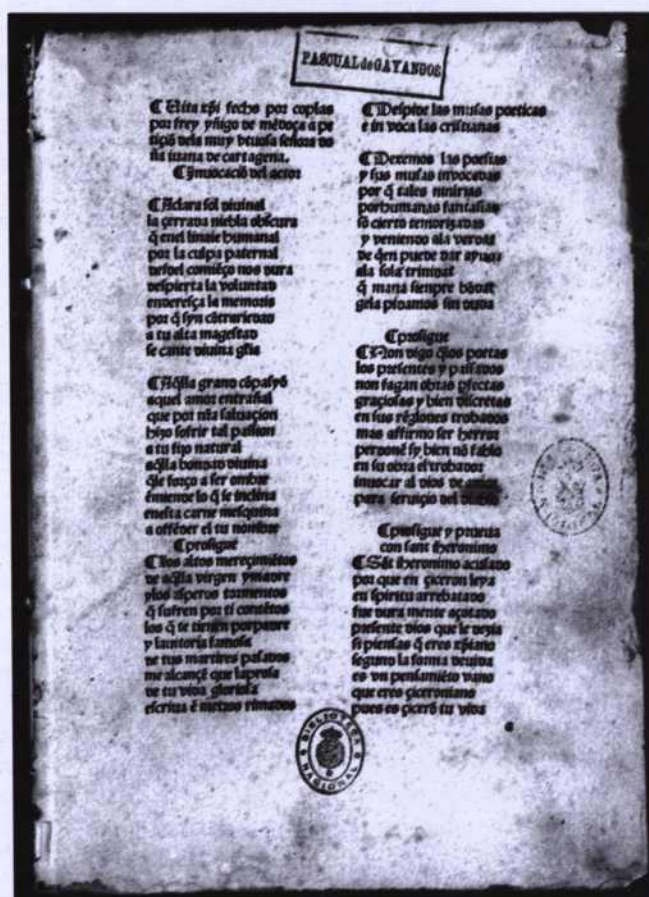 PASCUAL de GAYANGOS
¶ Uita xp̄i fecho por coplas
por frey yñigo de mēdoça a pe
tiçiō dela muy v̄tuosa señora do
ña iuana de cartagena.
¶ ynuocaciō del actor
¶ Aclara sol diuinal
la çerrada niebla obscura
q̄ enel linaie humanal
por la culpa paternal
desdel comiēço nos dura
despierta la voluntad
endereſça la memoria
por q̄ syn cōtrariedad
a tu alta mageſtad
ſe cante diuina gl̄ia
¶ Aq̄lla grand cōpaſyō
aquel amor entrañal
que por nr̄a ſaluaçion
hizo ſofrir tal paſſion
a tu fijo natural
aq̄lla bondad diuina
q̄le forço a ſer ombre
ēmiende lo q̄ ſe inclina
eneſta carne meſquina
a offēder el tu nombre
¶ proſigue
¶ los altos mereçimiētos
de aq̄lla virgen ymadre
ylos aſperos tormentos
q̄ ſufren por ti contētos
los q̄ te tienen porpadre
y lauitoria famoſa
de tus martires paſados
me alcançē que laproſa
de tu vida glorioſa
eſcriua ē metros rimados
¶ Deſpide las muſas poeticas
e in voca las criſtianas
¶ Dexemos las poeſias
y ſus muſas invocadas
por q̄ tales niñirias
porhumanas fantaſias
ſō cierto temorizadas
y veniendo ala verdad
de q̄en puede dar ayuda
ala ſola trinidad
q̄ mana ſiempre bōdad
gela pidamos ſin duda
¶ proſigue
¶ Non digo q̄los poetas
los preſentes y paſſados
non fagan obras ꝑfectas
gracioſas y bien diſcretas
en ſus reglones trobados
mas affirmo ſer herror
perdonē ſy bien nō fablo
en ſu obra el trobador
inuocar al dios de amor
para ſeruiçio del
¶ proſigue y prueua
con ſant iheronimo
¶ Sāt iheronimo acuſado
por que en çiceron leya
en ſpiritu arrebatado
fue dura mente açotado
preſente dios que le dezia
ſi pienſas q̄ eres xp̄iano
ſegund la forma deuida
es vn penſamiēto vano
que eres çiceroniano
pues es çicerō tu vida
BIBLIOTECA
NACIONAL